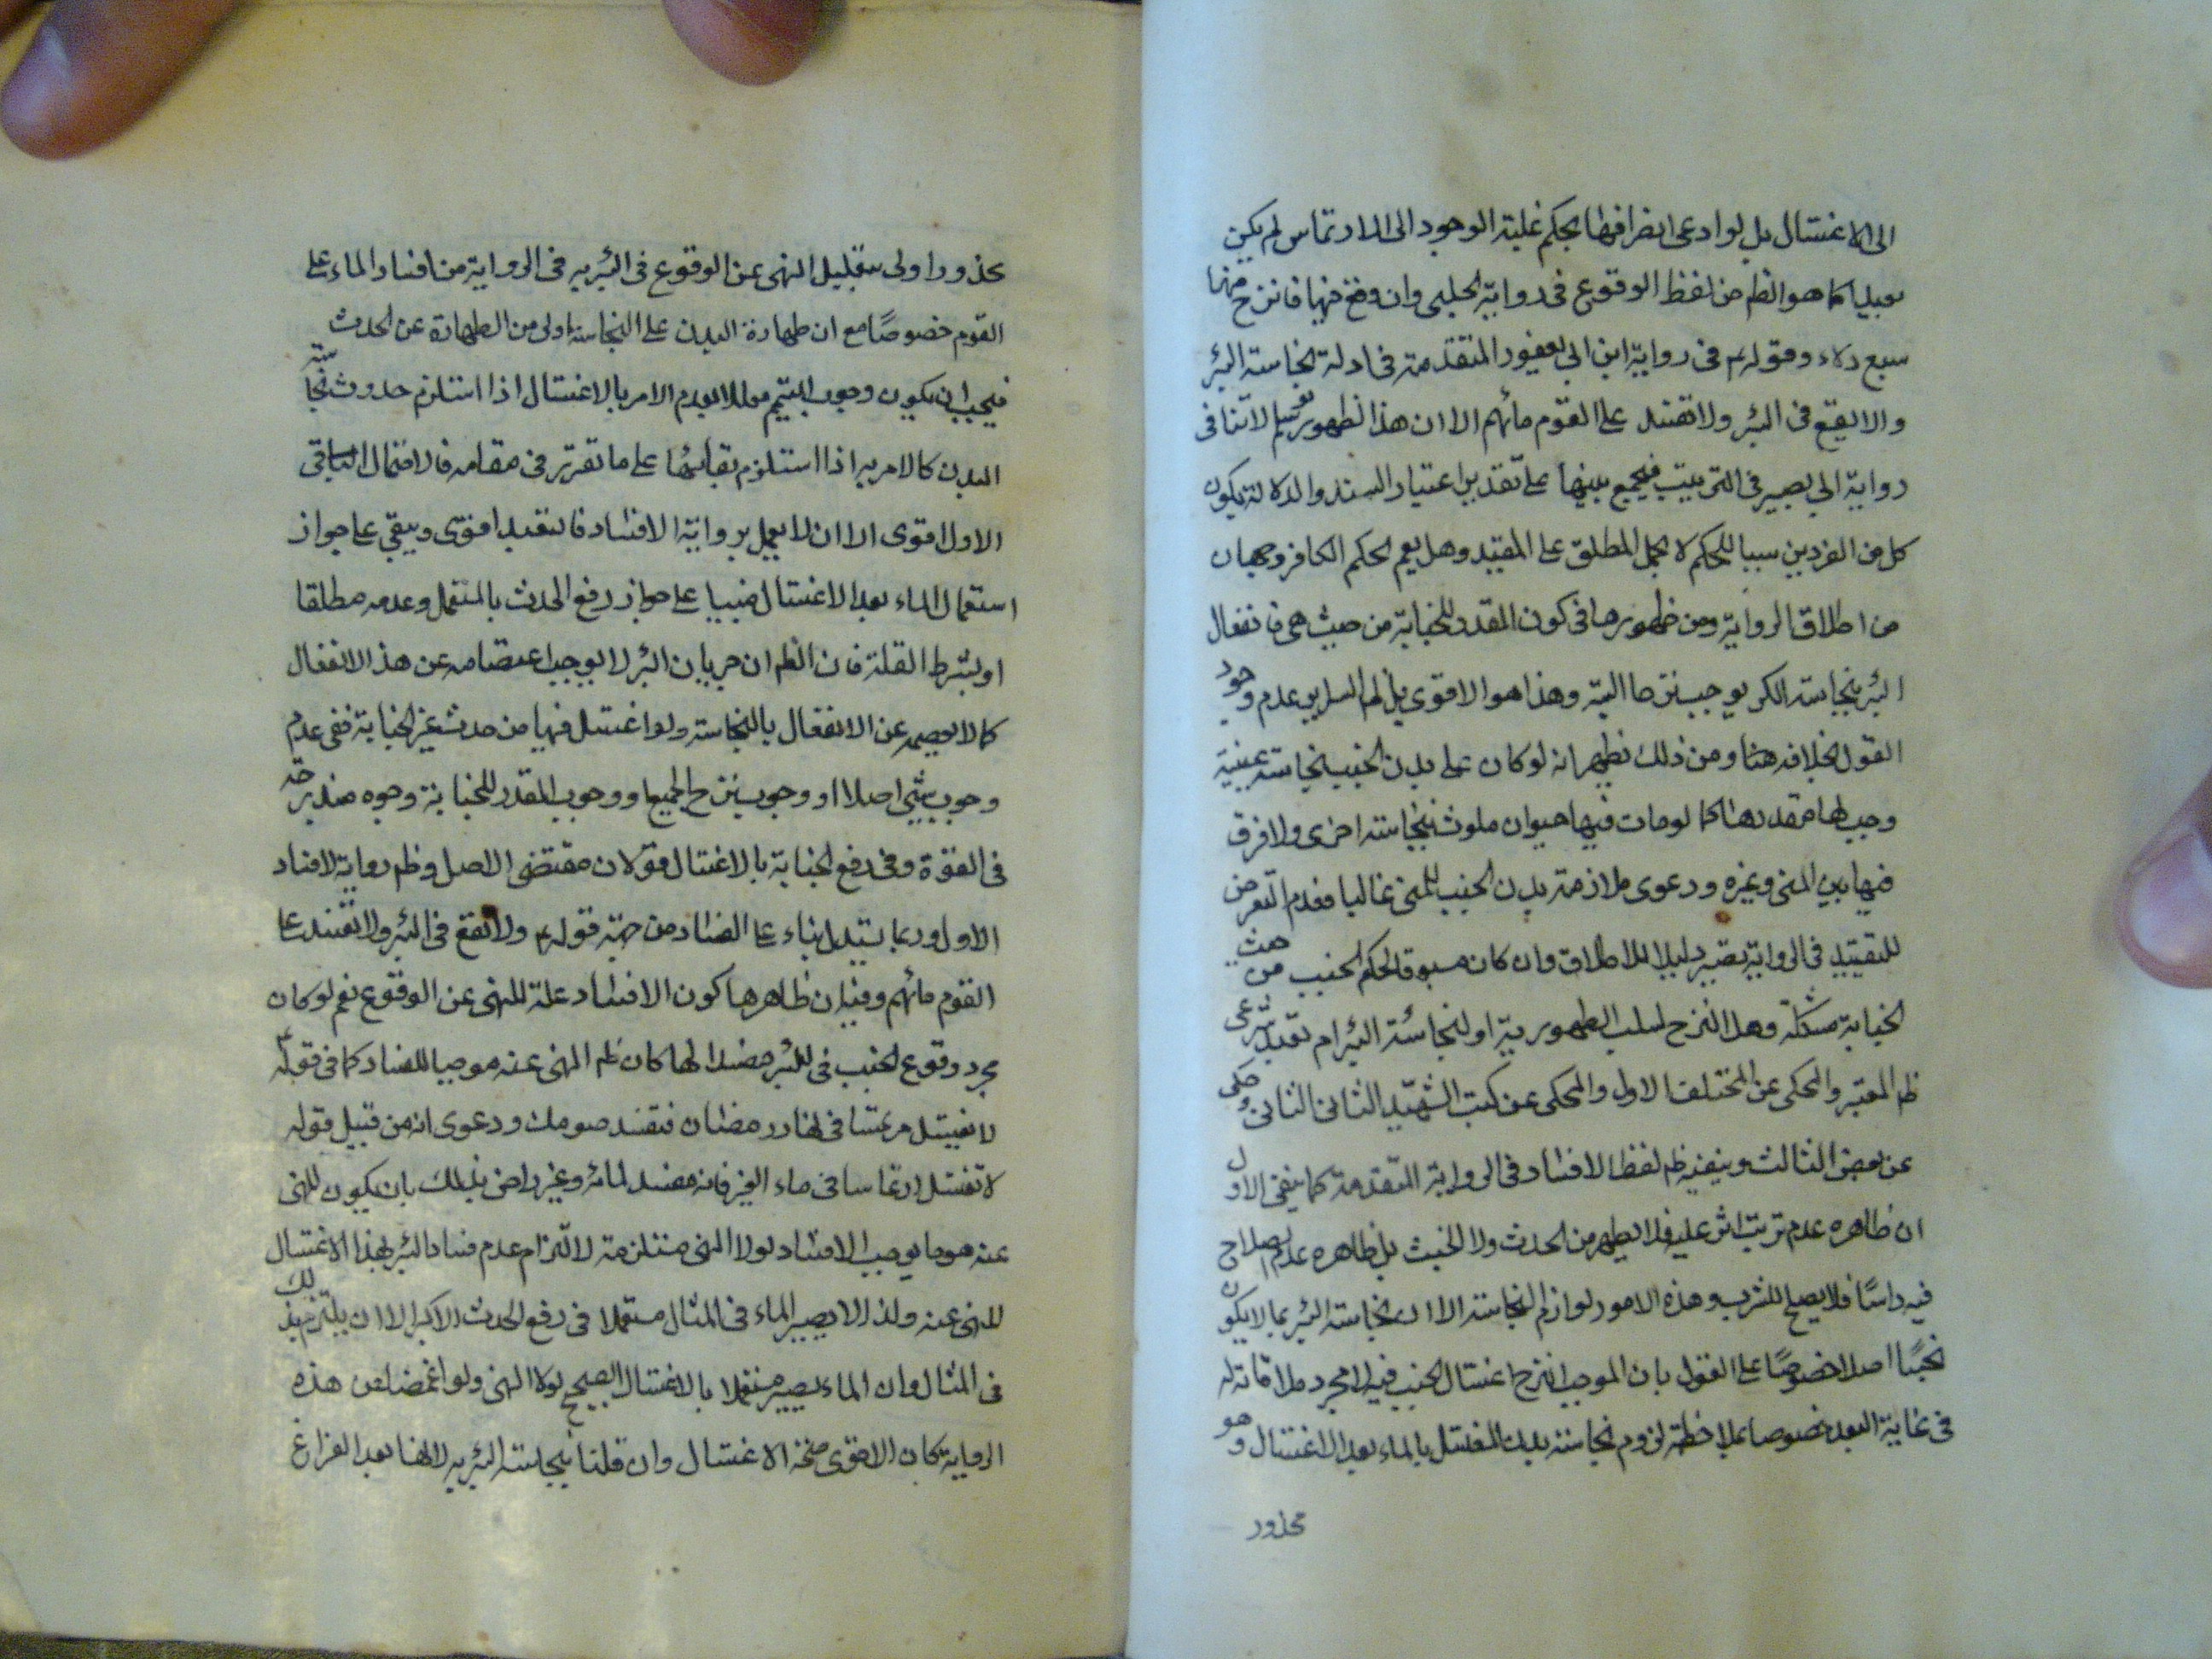 الى الاغتسال بل لو ادعى انصرافها بحكم غلبة الوجود الى الارتماس لم يكن
بعيدا كما هو الظم من لفظ الوقوع فى رواية الحلبى وان وقع فيها فانزح منها
سبع دلاء وقوله ع فى رواية ابن ابى يعفور المتقدمة فى ادلة نجاسة البئر
ولا تقع فى البئر ولا تفسد على القوم مائهم الا ان هذا الظهور لا تنافى
رواية ابى بصير فى الترتيب فيجمع بينها على تقدير اعتبار السند والدلالة بكون
كل من الفردين سببا للحكم لا بحمل المطلق على المقيد وهل يعم الحكم الكافر وجهان
من اطلاق الرواية ومن ظهورها فى كون المقدر للجنابة من حيث هى فانفعال
البئر بنجاسة الكافر يوجب نزح ما البئر وهذا هو الاقوى بل لعدم وجود
القول بخلافه هنا ومن ذلك يظهر انه لو كان على بدن الجنب نجاسة عينية
وجب لها مقدرها كما لو مات فيها حيوان ملوث بنجاسة اخرى ولا فرق
فيها بين المنى وغيره ودعوى ملازمة بدن الجنب للمنى غالبا فعدم التعرض
للتقييد فى الرواية يصير دليلا للاطلاق وان كان مسوقا لحكم الجنب من حيث
الجنابة مشكلة وهل النزح لسلب الطهورية او لنجاسة البئر ام تعبد شرعى
ظم المعتبر والمحكى عن المختلف الاول والمحكى عن كتب الشهيد الثانى الثانى وحكى
عن بعض الثالث وينفيه ظم لفظ الافساد فى الرواية المتقدمة كما ينفى الاول
ان ظاهره عدم ترتب اثر عليه فلا يطهر من الحدث ولا الخبث بل ظاهره عدم الصلاح
فيه راسًا فلا يصلح للشرب وهذه الامور لوازم النجاسة الا ان نجاسة البئر بما لا يكون
نجسًا اصلا خصوصًا على القول بان الموجب للنزح اغتسال الجنب فيه لا مجرد ملاقاته له
فى غاية البعد خصوصا بملاحظة لزوم نجاسة بدن المغتسل بالماء بعد الاغتسال وهو
محذور
محذور اولى بتعليل النهى عن الوقوع فى البئر به فى الرواية من افساد الماء على
القوم خصوصًا مع ان طهارة البدن على النجاسة اولى من الطهارة عن الحدث
فيجب ان يكون وجوب التيمم معللا بعدم الامر بالاغتسال اذا استلزم حدوث نجاسة
البدن كالامر به اذا استلزم بقائها على ما تقرر فى مقامه فالاحتمال الباقى
الاول اقوى الا ان لا يعمل برواية الافساد فالتعبد اقوى ويبقى على جواز
استعمال الماء بعد الاغتسال مبنيا على جواز رفع الحدث بالمستعمل وعدمه مطلقا
او بشرط القلة فان الظم ان جريان البئر لا يوجب اعتصامه عن هذا الانفعال
كما لا يعصمه عن الانفعال بالنجاسة ولو اغتسل فيها من حدث غير الجنابة ففى عدم
وجوب شئ اصلا او وجوب نزح الجميع او وجوب المقدر للجنابة وجوه متدرجة
فى القوة وفى رفع الجنابة بالاغتسال قولان مقتضى الاصل وظم رواية الافساد
الاول وربما يستدل بناء على الفساد من جهة قوله ع ولا تقع فى البئر ولا تفسد على
القوم مائهم وفيه ان ظاهرها كون الافساد علة للنهى عن الوقوع نعم لو كان
مجرد وقوع الجنب فى البئر مفسدا لها كان ظم النهى عنه موجبا للفساد كما فى قوله
لا تغتسل مرتمسا فى نهار رمضان فتفسد صومك ودعوى انه من قبيل قوله
لا تغتسل ارتماسا فى ماء الغير فانه مفسد لمائه وغير راض بذلك بان يكون المنهى
عنه هو ما يوجب الافساد لولا النهى مستلزمة لالتزام عدم فساد البئر بهذا الاغتسال
المنهى عنه ولذا لا يصير الماء فى المثال مستعملا فى رفع الحدث الاكبر الا ان يلتزم بذلك
فى المثال وان الماء يصير مستعملا بالاغتسال الصحيح لولا النهى ولو اغمض عن هذه
الرواية كان الاقوى صحة الاغتسال وان قلنا بنجاسة البئر به لانها بعد الفراغ